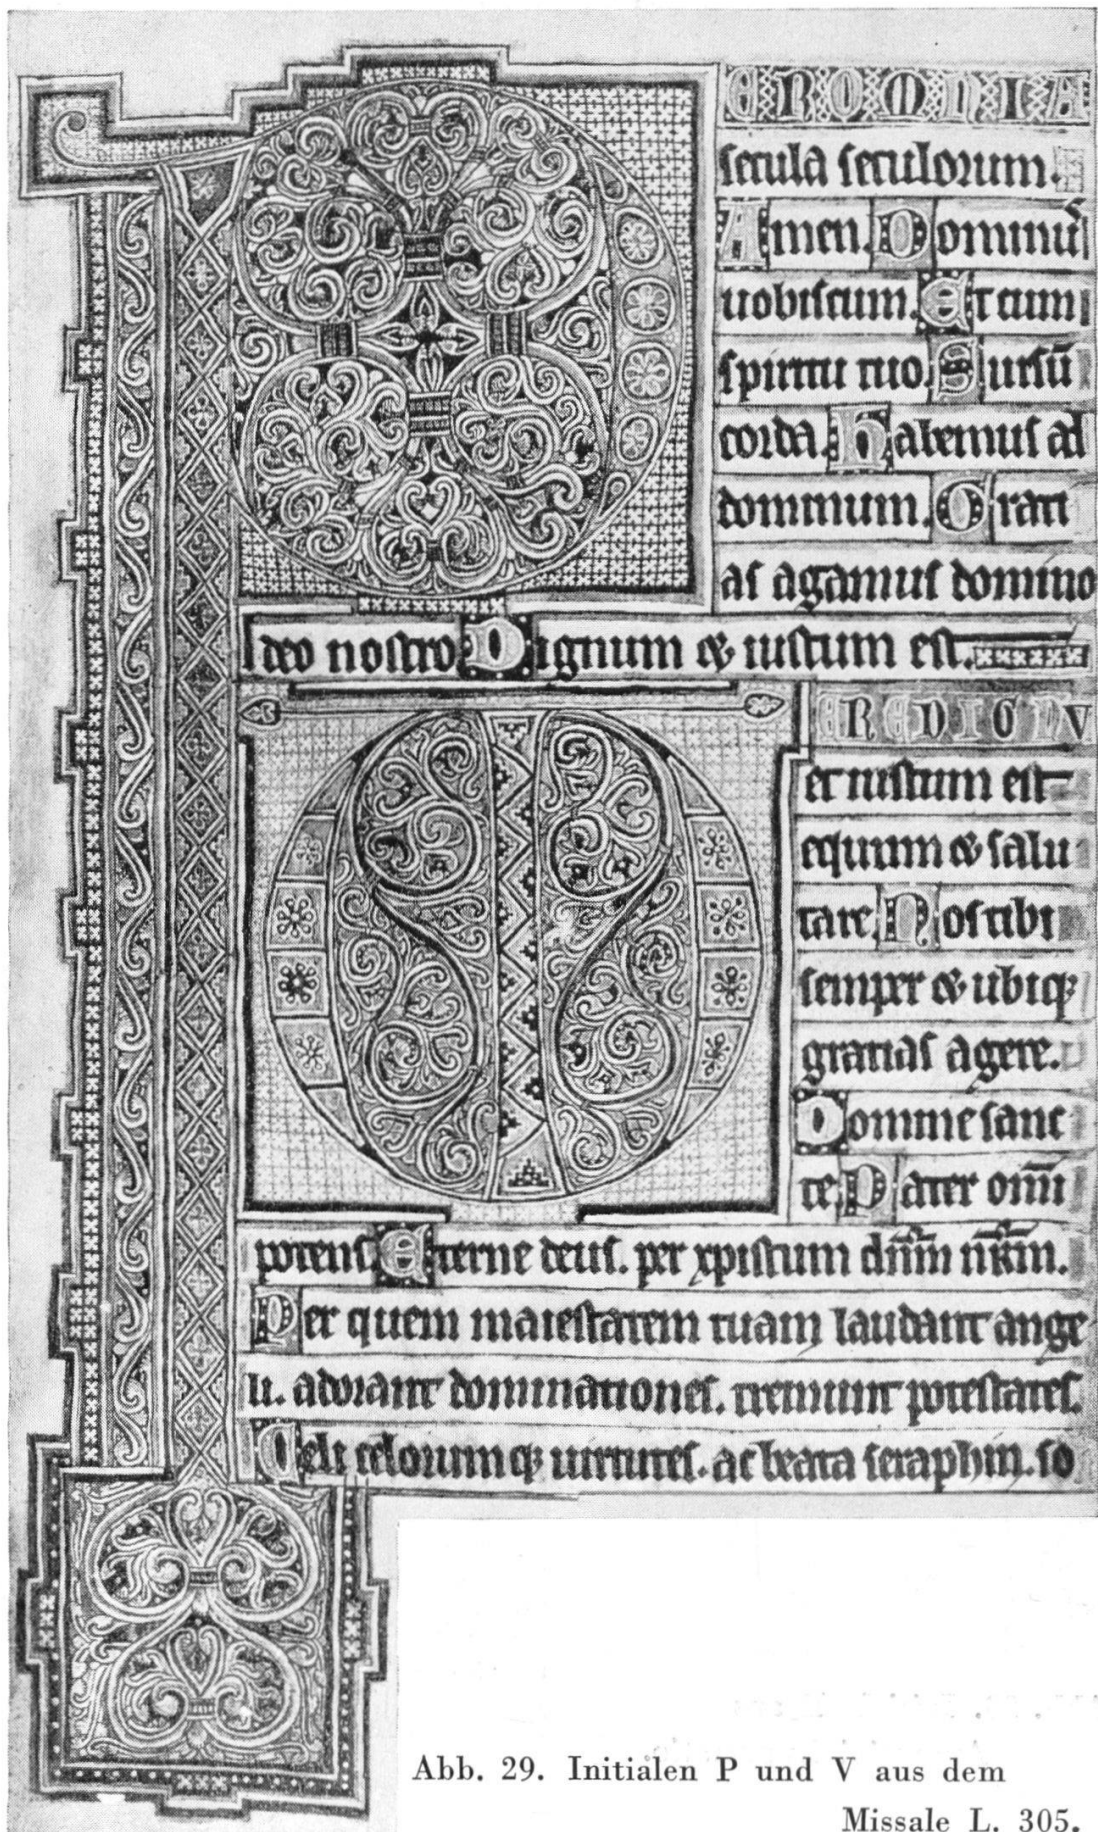 PEROMNIA
ſecula ſeculorum.
Amen. Dominuˢ
uobiſcum. Et cum
ſpiritu tuo. Surſū
corda. Habemuſ ad
dominum. Grati
aſ agamuſ domino
deo noſtro. Dignum & iuſtum eſt.
VEREDIGNV
et iuſtum eſt
equum & ſalu
tare. Noſ tibi
ſemper & ubiq;
gratiaſ agere.
Domine ſanc
te. Pater om̅i
potenſ. Eterne deus. per xpiſtum dn̅m nr̅m.
Per quem maieſtatem tuam laudant ange
li. adorant dominationeſ. tremunt poteſtateſ.
Celi celorumq; uirtuteſ. ac beata ſeraphin. ſo
Abb. 29. Initialen P und V aus dem
Missale L. 305.